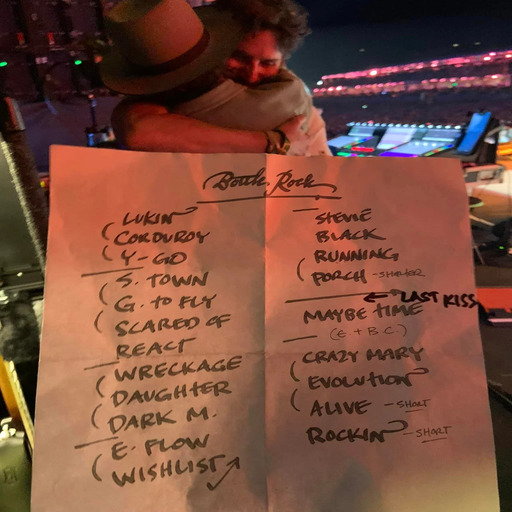 Bottle Rock
LUKIN
CORDUROY
Y-GO
S. TOWN
G. TO FLY
SCARED OF
REACT
WRECKAGE
DAUGHTER
DARK M.
E. FLOW
WISHLIST
STEVIE
BLACK
RUNNING
PORCH - SHORTER
← LAST KISS
MAYBE TIME
(E + B.C.)
CRAZY MARY
EVOLUTION
ALIVE - SHORT
ROCKIN - SHORT